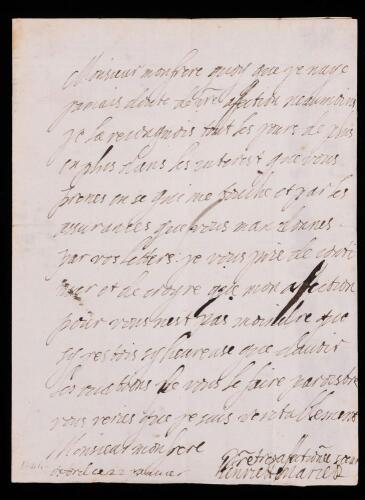 Monsieur mon frere quoy que je naye
jamais doute de vre afection neaumoins
je la recognois tout les jours de plus
en plus dans les interest que vous
prenes en se qui me touche et par les
assurances que vous man donnes
par vos leters je vous prie de conti
nuer et de croyre que mon afection
pour vous nest pas moindre et que
sy jestois sy heureuse que dauoir
des ocations de vous le faire paroistre
vous veries que je suis veritablement
Monsieur mon frere
Vre tres afectionee soeur
ce 22 Henriette Marie R